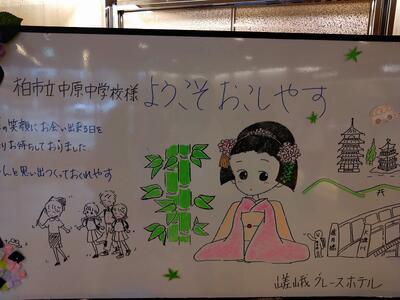 柏市立中原中学校様 ようこそおこしやす
の笑顔にお会い出来る日を
りお待ちしておりました
んと思い出つくっておくれやす
嵯峨グレースホテル